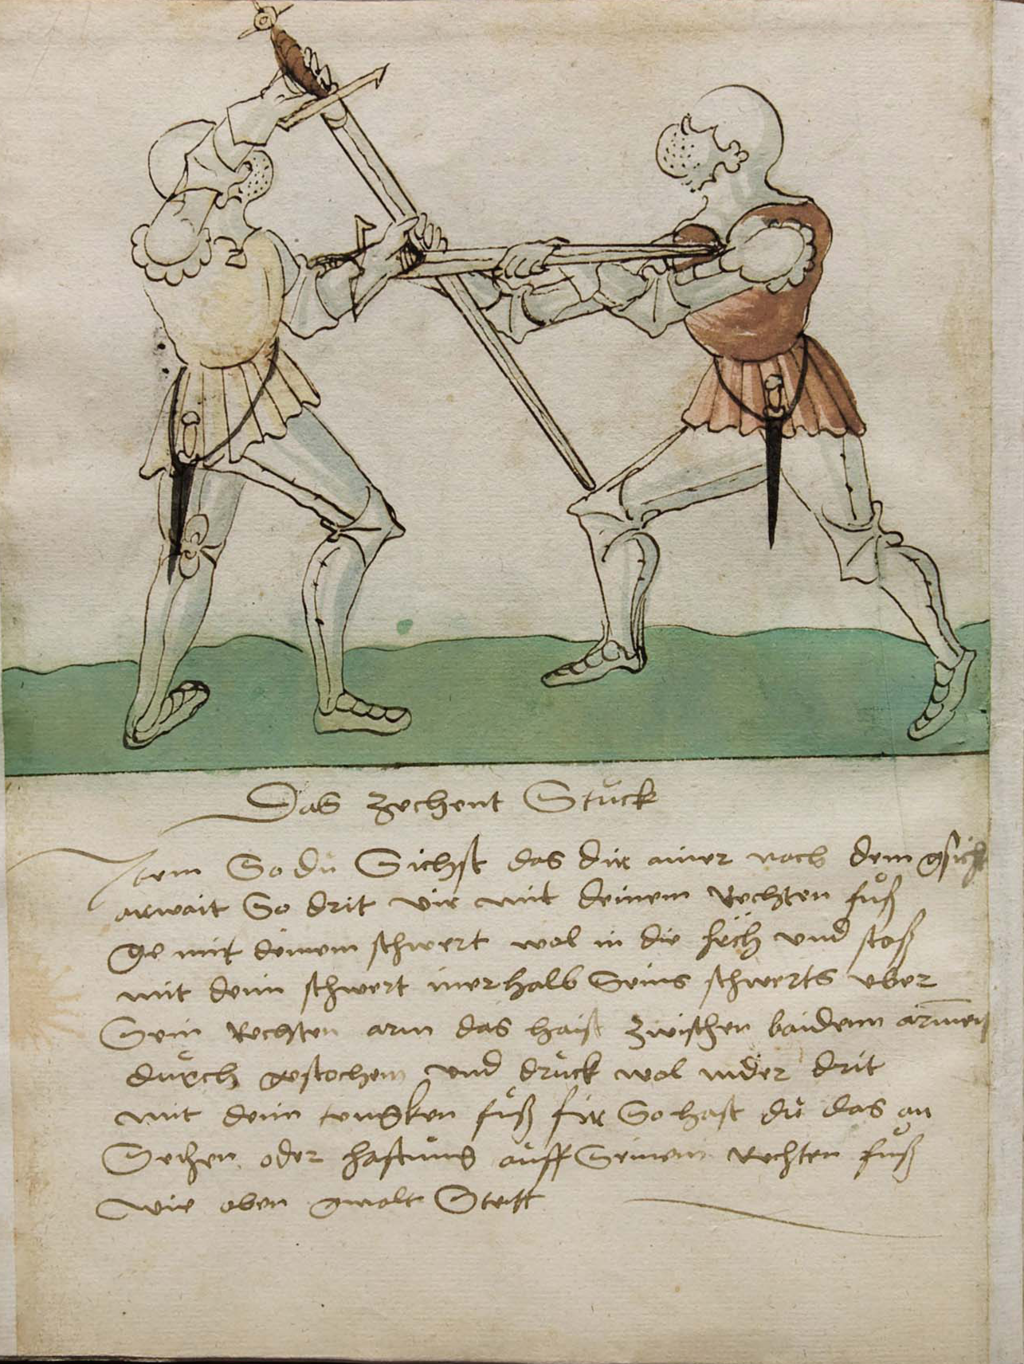 Das zechent Stuck
Item So du Sichst das dir ainer nach dem gsicht
arwait So drit vir mit deinem Rechten fuß
ge mit deinem schwert wol in die hech vnd stoß
mit deim schwert inerhalb Seins schwerts vber
Sein Rechten arm das haist zwischen baidenn armen
durch gestochen vnd druck wol nider drit
mit deim fuß fir So hast du das an
Sehen oder hastung auff Seinem Rechten fuß
wie oben gmolt Stett